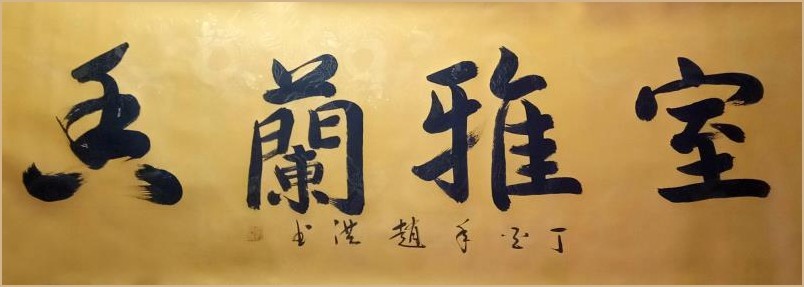 室雅蘭香
丁酉年趙洪书